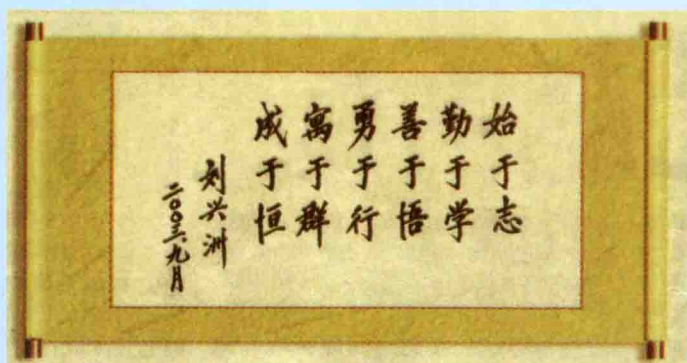 始于志
勤于学
善于悟
勇于行
寓于群
成于恒
刘兴洲
二〇〇三、九月